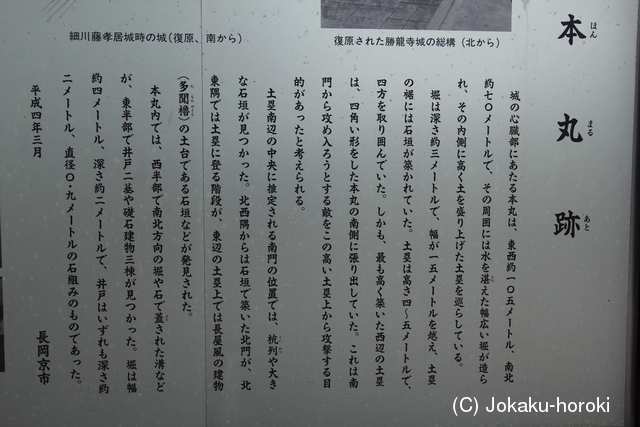 細川藤孝居城時の城(復原、南から)
復原された勝龍寺城の総構(北から)
本丸跡
ほん
まる
あと
城の心臓部にあたる本丸は、東西約一〇五メートル、南北
約七〇メートルで、その周囲には水を湛えた幅広い堀が造ら
れ、その内側に高く土を盛り上げた土塁を巡らしている。
堀は深さ約三メートルで、幅が一五メートルを越え、土塁
の裾には石垣が築かれていた。土塁は高さ四～五メートルで、
四方を取り囲んでいた。しかも、最も高く築いた西辺の土塁
は、四角い形をした本丸の南側に張り出していた。これは南
門から攻め入ろうとする敵をこの高い土塁上から攻撃する目
的があったと考えられる。
土塁南辺の中央に推定される南門の位置では、杭列や大き
な石垣が見つかった。北西隅からは石垣で築いた北門が、北
東隅では土塁に登る階段が、東辺の土塁上では長屋風の建物
(多聞櫓)の土台である石垣などが発見された。
本丸内では、西半部で南北方向の堀や石で蓋された溝など
が、東半部で井戸二基や礎石建物三棟が見つかった。堀は幅
約四メートル、深さ約二メートルで、井戸はいずれも深さ約
二メートル、直径〇・九メートルの石組みのものであった。
平成四年三月
長岡京市
(C) Jokaku-horoki